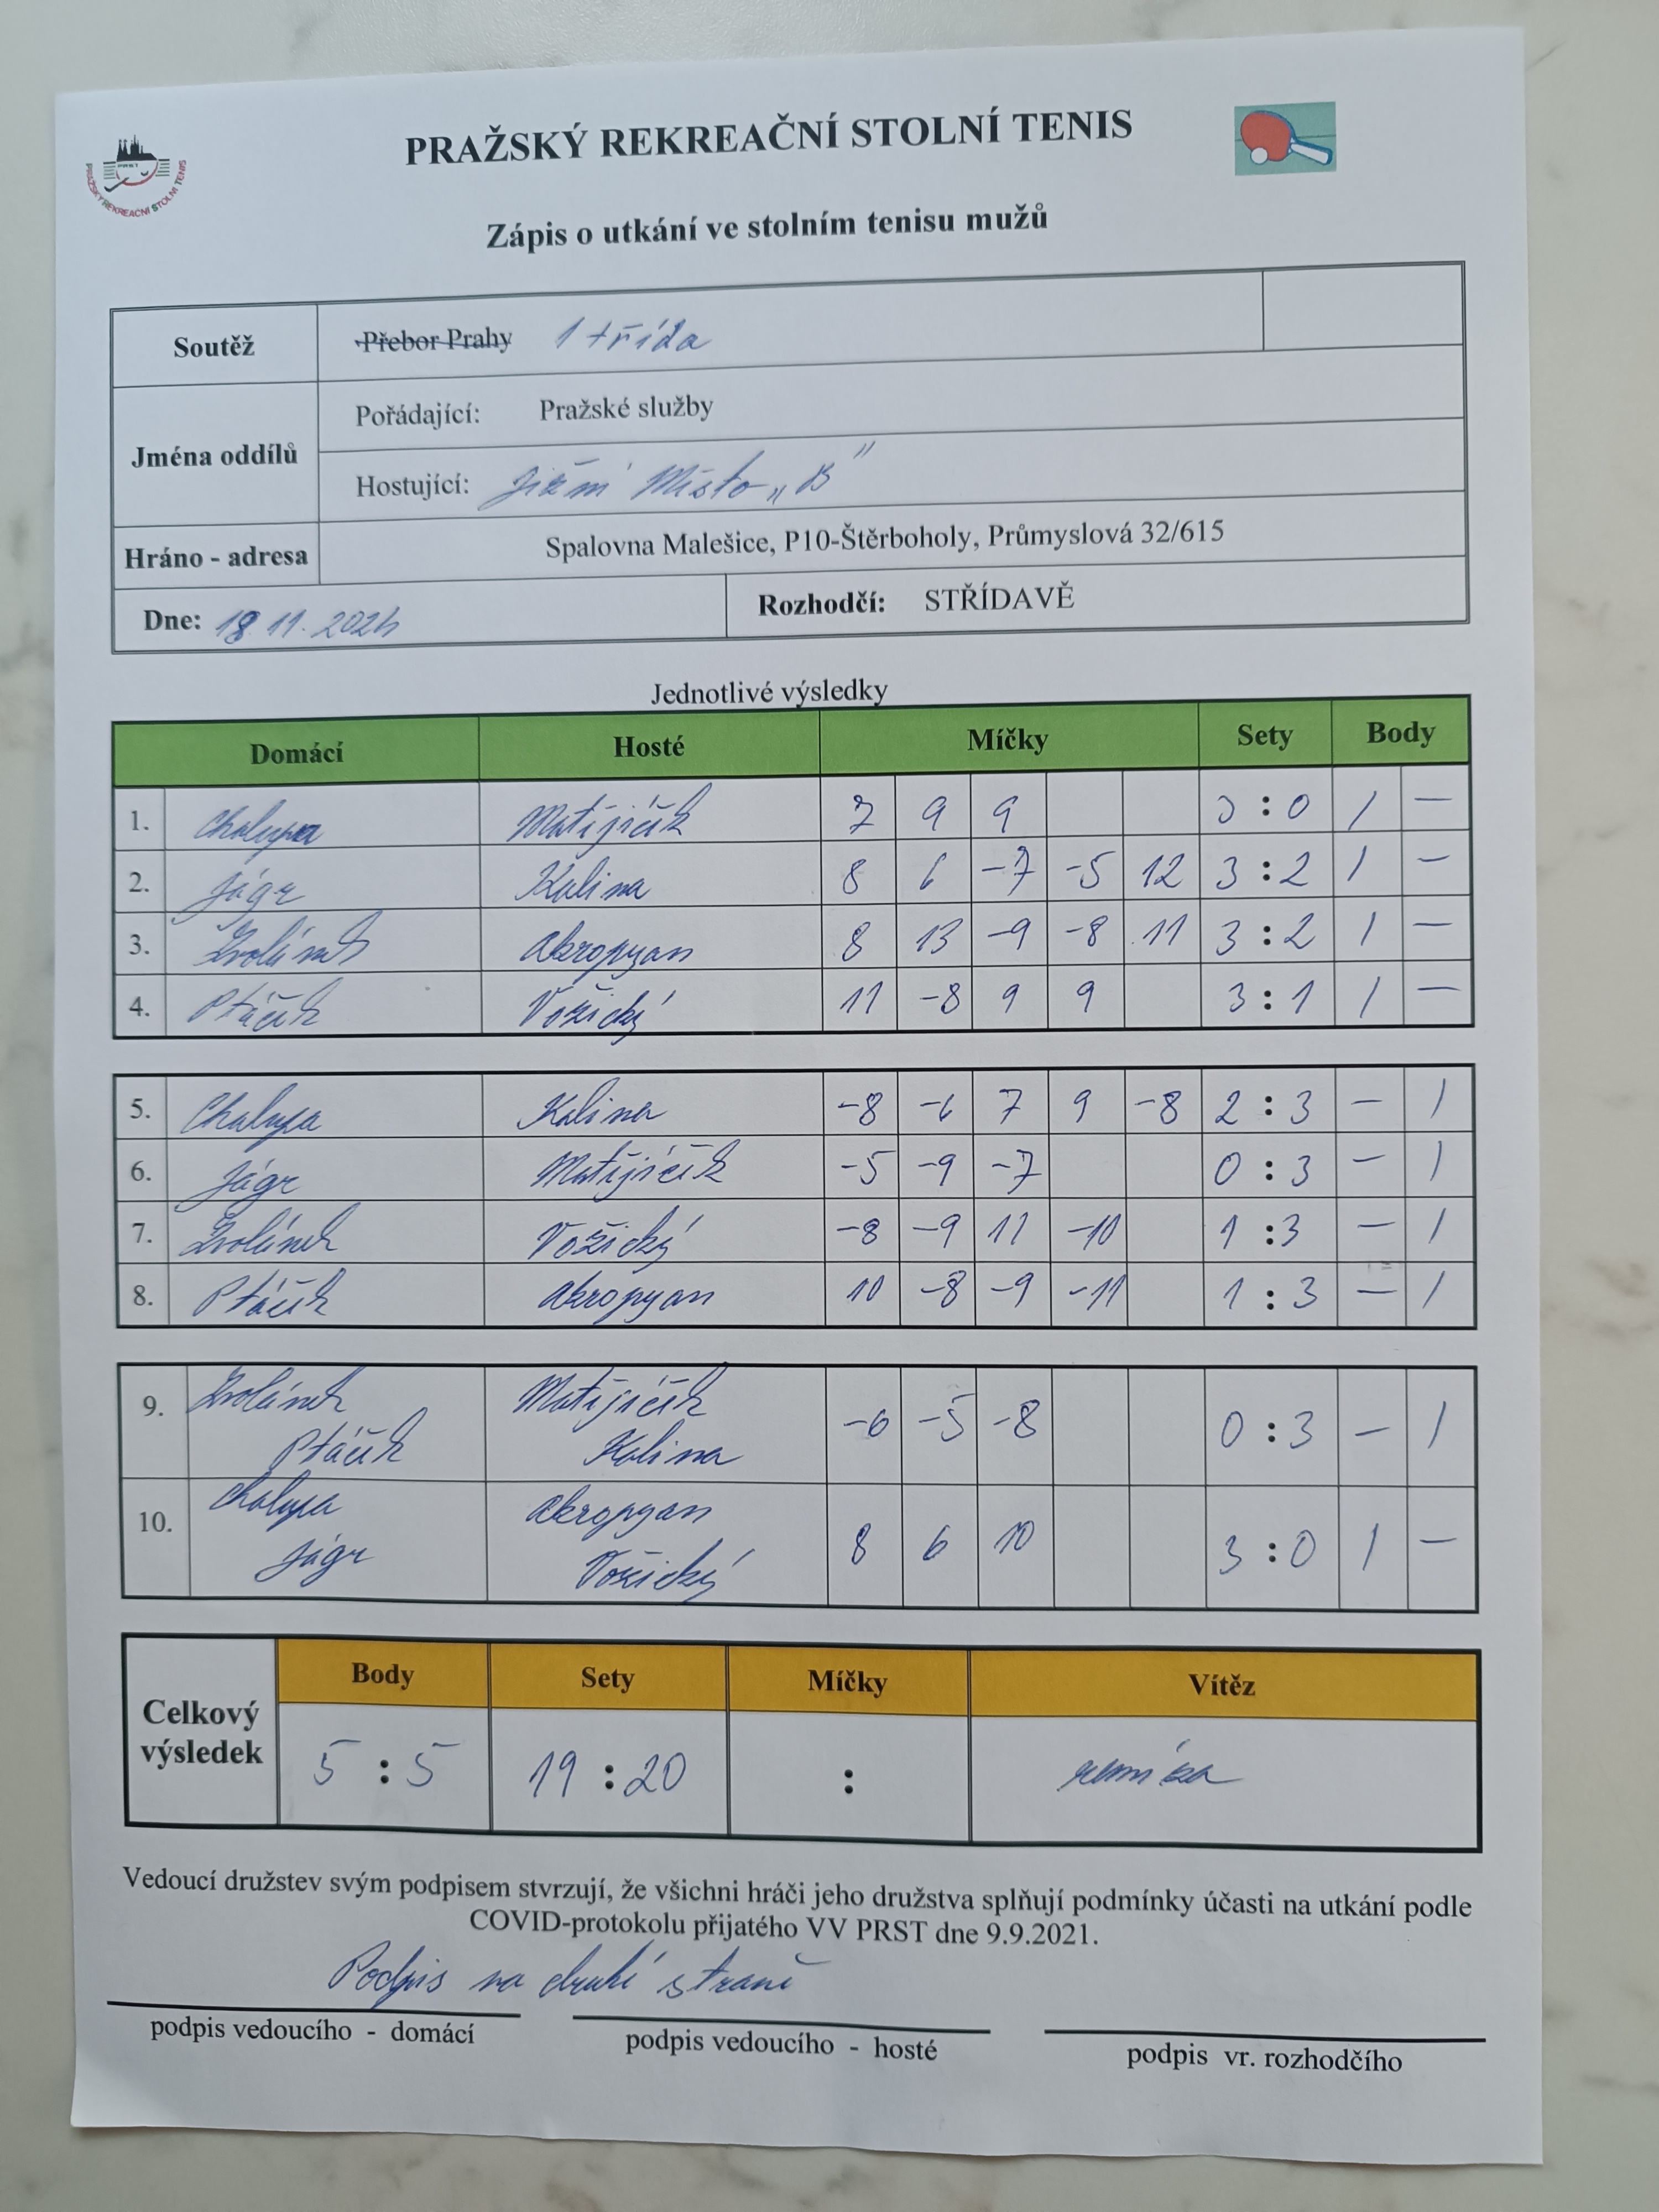 PRAŽSKÝ REKREAČNÍ STOLNÍ TENIS
PRST
PRAŽSKÝ REKREAČNÍ STOLNÍ TENIS
Zápis o utkání ve stolním tenisu mužů
Soutěž Přebor Prahy 1 třída
Jména oddílů
Pořádající: Pražské služby
Hostující: Jižní Město „B"
Hráno - adresa Spalovna Malešice, P10-Štěrboholy, Průmyslová 32/615
Dne: 18.11.2024 Rozhodčí: STŘÍDAVĚ
Jednotlivé výsledky
Domácí Hosté Míčky Sety Body
1. Chalupa Matějíček 7 9 9 3 : 0 1 —
2. Jágr Kalina 8 6 -7 -5 12 3 : 2 1 —
3. Zvolánek Akropyan 8 13 -9 -8 11 3 : 2 1 —
4. Ptáček Vožický 11 -8 9 9 3 : 1 1 —
5. Chalupa Kalina -8 -6 7 9 -8 2 : 3 — 1
6. Jágr Matějíček -5 -9 -7 0 : 3 — 1
7. Zvolánek Vožický -8 -9 11 -10 1 : 3 — 1
8. Ptáček Akropyan 10 -8 -9 -11 1 : 3 — 1
9. Zvolánek Matějíček -6 -5 -8 0 : 3 — 1
Ptáček Kalina
10. Chalupa Akropyan 8 6 10 3 : 0 1 —
Jágr Vožický
Celkový výsledek
Body Sety Míčky Vítěz
5 : 5 19 : 20 : remíza
Vedoucí družstev svým podpisem stvrzují, že všichni hráči jeho družstva splňují podmínky účasti na utkání podle
COVID-protokolu přijatého VV PRST dne 9.9.2021.
Podpis na druhé straně
podpis vedoucího - domácí podpis vedoucího - hosté podpis vr. rozhodčího